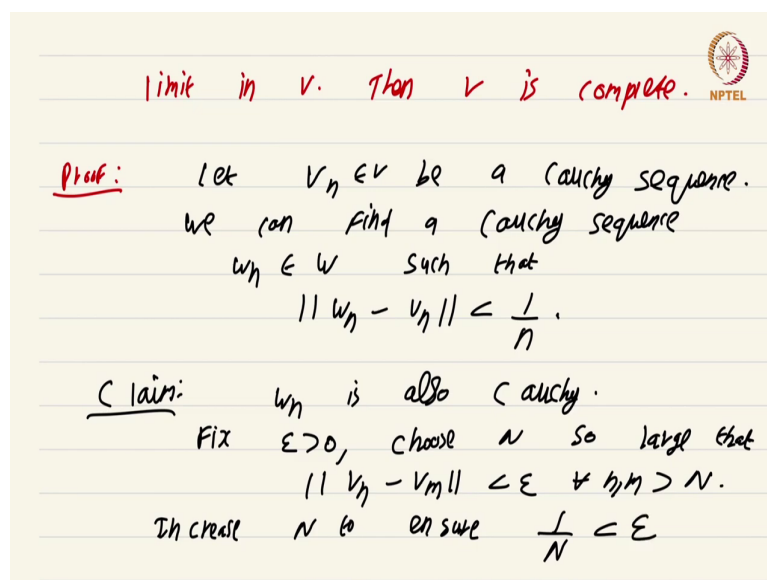 limit in V. Then V is complete.
NPTEL
Proof: Let Vn ∈ V be a Cauchy sequence.
We can find a Cauchy sequence
Wn ∈ W such that
|| Wn - Vn || < 1/n .
Claim: Wn is also Cauchy.
Fix ε>0, choose N so large that
|| Vn - Vm || < ε ∀ n,m > N.
Increase N to ensure 1/N < ε